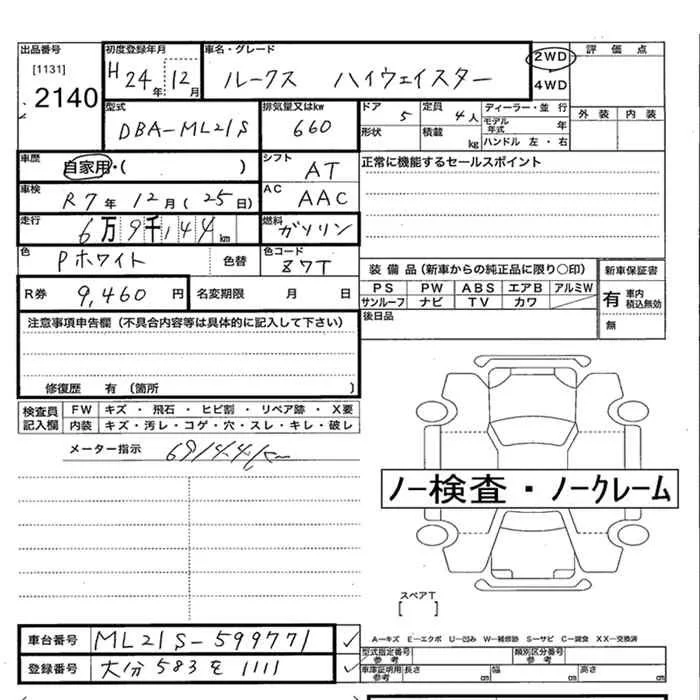 出品番号
[1131]
2140
初度登録年月
H 24年 12月
車名・グレード
ルークス ハイウェイスター
2WD
4WD
評価点
外装 内装
型式
DBA-ML21S
排気量又はkw
660
ドア 5
定員 4人
形状
積載 kg
ディーラー・並行
モデル年式 年
ハンドル 左・右
車歴
自家用・( )
シフト
AT
正常に機能するセールスポイント
車検
R7年 12月(25日)
AC
AAC
走行
6万9千144km
燃料
ガソリン
色
Pホワイト
色替
色コード
Z7T
装備品(新車からの純正品に限り○印)
PS PW ABS エアB アルミW
サンルーフ ナビ TV カワ
後日品
新車保証書
有 車内積込無効
無
R券 9,460円
名変期限 月 日
注意事項申告欄(不具合内容等は具体的に記入して下さい)
修復歴 有(箇所 )
検査員記入欄
FW キズ・飛石・ヒビ割・リペア跡・X要
内装 キズ・汚レ・コゲ・穴・スレ・キレ・破レ
メーター指示 69144km
ノー検査・ノークレーム
スペアT
[ ]
A―キズ E―エクボ U―凹み W―補修跡 S―サビ C―腐食 XX―交換済
車台番号 ML21S-599771 ✓
登録番号 大分 583 を 1111 ✓
型式指定番号
参考
類別区分番号
参考
車庫証明用参考
長さ cm 幅 cm 高さ cm